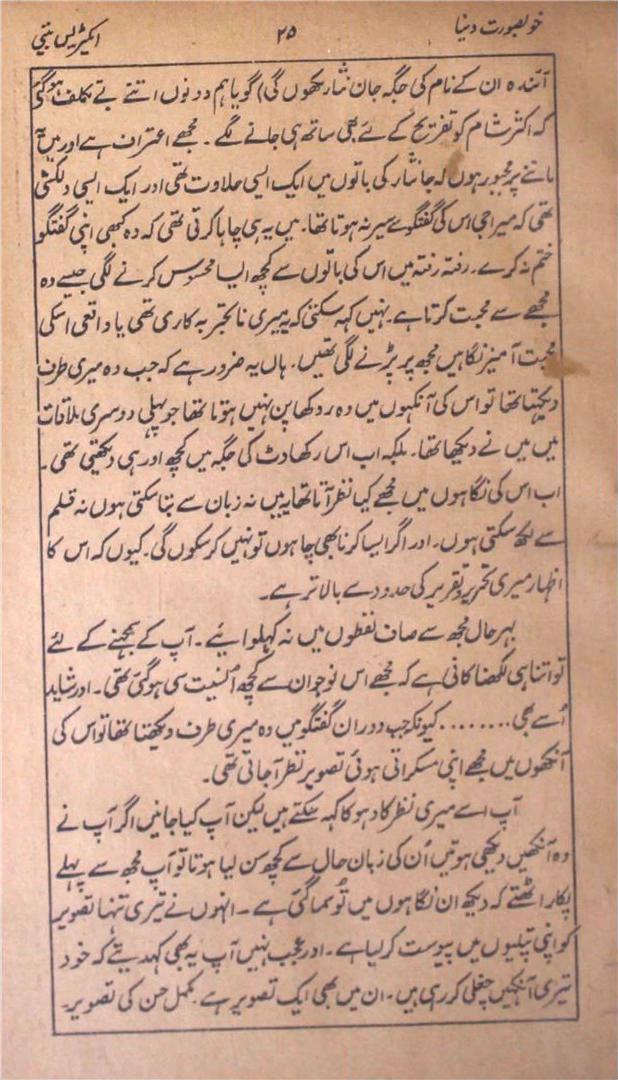 خوبصورت دنیا ۲۵ ایکٹریس بیتی
آئندہ ان کے نام کی جگہ جان نثار لکھوں گی) گویا ہم دونوں اتنے بے تکلف ہو گئے
کہ اکثر شام کو تفریح کے لئے بھی ساتھ ہی جانے لگے۔ مجھے اعتراف ہے اور میں یہ
ماننے پر مجبور ہوں کہ جانثار کی باتوں میں ایک ایسی حلاوت تھی اور ایک ایسی دلکشی
تھی کہ میرا جی اس کی گفتگو سے سیر نہ ہوتا تھا۔ میں یہ ہی چاہا کرتی تھی کہ وہ کبھی اپنی گفتگو
ختم نہ کرے۔ رفتہ رفتہ میں اس کی باتوں سے کچھ ایسا محسوس کرنے لگی جیسے وہ
مجھ سے محبت کرتا ہے۔ نہیں کہہ سکتی کہ یہ میری ناتجربہ کاری تھی یا واقعی اسکی
محبت آمیز نگاہیں مجھ پر پڑنے لگی تھیں۔ ہاں یہ ضرور ہے کہ جب وہ میری طرف
دیکھتا تھا تو اس کی آنکھوں میں وہ روکھا پن نہیں ہوتا تھا جو پہلی دوسری ملاقات
میں میں نے دیکھا تھا۔ بلکہ اب اس رکھاوٹ کی جگہ میں کچھ اور ہی دیکھتی تھی۔
اب اس کی نگاہوں میں مجھے کیا نظر آتا تھا یہ میں نہ زبان سے بتا سکتی ہوں نہ قلم
سے لکھ سکتی ہوں۔ اور اگر ایسا کرنا بھی چاہوں تو نہیں کر سکوں گی۔ کیوں کہ اس کا
اظہار میری تحریر و تقریر کی حدود سے بالاتر ہے۔
بہر حال مجھ سے صاف لفظوں میں نہ کہلوائیے۔ آپ کے سمجھنے کے لئے
تو اتنا ہی لکھنا کافی ہے کہ مجھے اس نوجوان سے کچھ اُنسیت سی ہو گئی تھی۔ اور شاید
اُسے بھی ........ کیونکہ جب دوران گفتگو میں وہ میری طرف دیکھتا تھا تو اس کی
آنکھوں میں مجھے اپنی مسکراتی ہوئی تصویر نظر آجاتی تھی۔
آپ اسے میری نظر کا دہوکا کہہ سکتے ہیں لیکن آپ کیا جانیں اگر آپ نے
وہ آنکھیں دیکھی ہوتیں اُن کی زبان حال سے کچھ سن لیا ہوتا تو آپ مجھ سے پہلے
پکار اٹھتے کہ دیکھ ان نگاہوں میں تُو سما گئی ہے۔ انہوں نے تیری تنہا تصویر
کو اپنی پتلیوں میں پیوست کر لیا ہے۔ اور عجب نہیں آپ یہ بھی کہدیتے کہ خود
تیری آنکھیں چغلی کر رہی ہیں۔ ان میں بھی ایک تصویر ہے۔ مکمل حسن کی تصویر۔